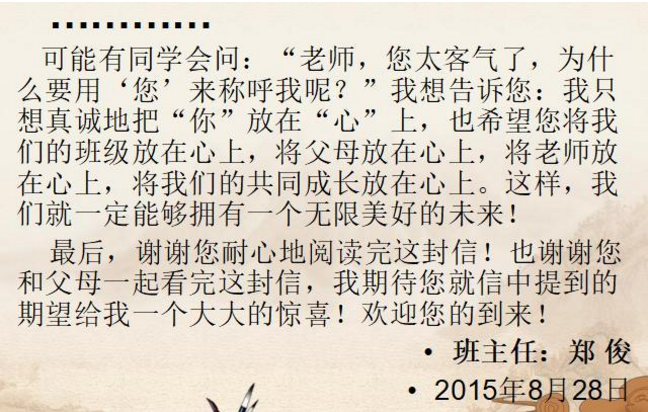 …………
可能有同学会问：“老师，您太客气了，为什
么要用‘您’来称呼我呢？”我想告诉您：我只
想真诚地把“你”放在“心”上，也希望您将我
们的班级放在心上，将父母放在心上，将老师放
在心上，将我们的共同成长放在心上。这样，我
们就一定能够拥有一个无限美好的未来！
最后，谢谢您耐心地阅读完这封信！也谢谢您
和父母一起看完这封信，我期待您就信中提到的
期望给我一个大大的惊喜！欢迎您的到来！
• 班主任：郑 俊
• 2015年8月28日